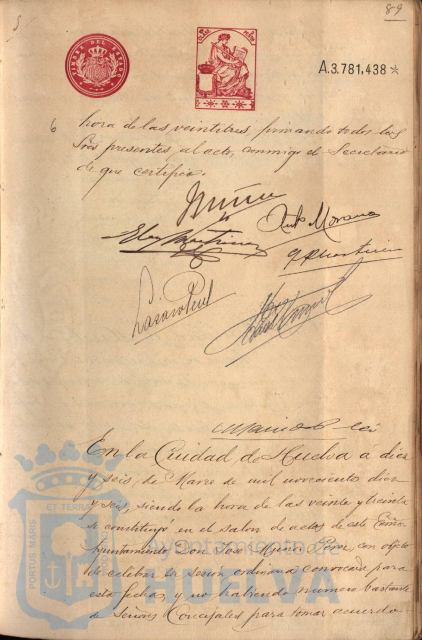 89
TIMBRE DEL ESTADO
A.3.781,438*
hora de las veintitres firmando todos los
Sres presentes, al acto, conmigo el Secretario
de que certifico.
Antº Moreno
En la Ciudad de Huelva a diez
y seis, de Marzo de mil novecientos diez
y seis, siendo la hora de las veinte y treinta
se constituyó en el salon de actos de este Excmo
Ayuntamiento, Don José con objeto
de celebrar la sesión ordinaria convocada para
esta fecha, y no habiendo número bastante
de Señores Concejales para tomar acuerdo
PORTUS MARIS
ET TERRAE
Ayuntamiento de
HUELVA